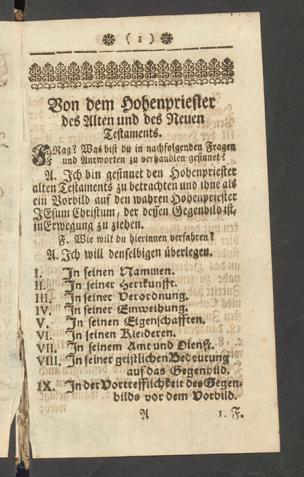 ( 1 )
Von dem Hohenpriester
des Alten und des Neuen
Testaments.
FRag? Was bist du in nachfolgenden Fragen
und Antworten zu verhandlen gesinnet?
A. Ich bin gesinnet den Hohenpriester
alten Testaments zu betrachten und ihne als
ein Vorbild auf den wahren Hohenpriester
JEsum Christum, der dessen Gegenbild ist,
in Erwegung zu ziehen.
F. Wie wilt du hierinnen verfahren?
A. Ich will denselbigen überlegen.
I. In seinen Nammen.
II. In seiner Herkunfft.
III. In seiner Verordnung.
IV. In seiner Einweihung.
V. In seinen Eigenschafften.
VI. In seinen Kleideren.
VII. In seinem Amt und Dienst.
VIII. In seiner geistlichen Bedeutung
auf das Gegenbild.
IX. In der Vortrefflichkeit des Gegen-
bilds vor dem Vorbild.
A 1. F.